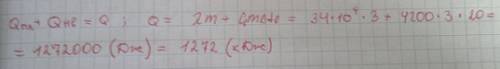 Qпл + Qнв = Q ; Q = λm + qmв t = 34·10⁴·3 + 4200·3·20 =
= 1272000 (Дж) = 1272 (кДж)